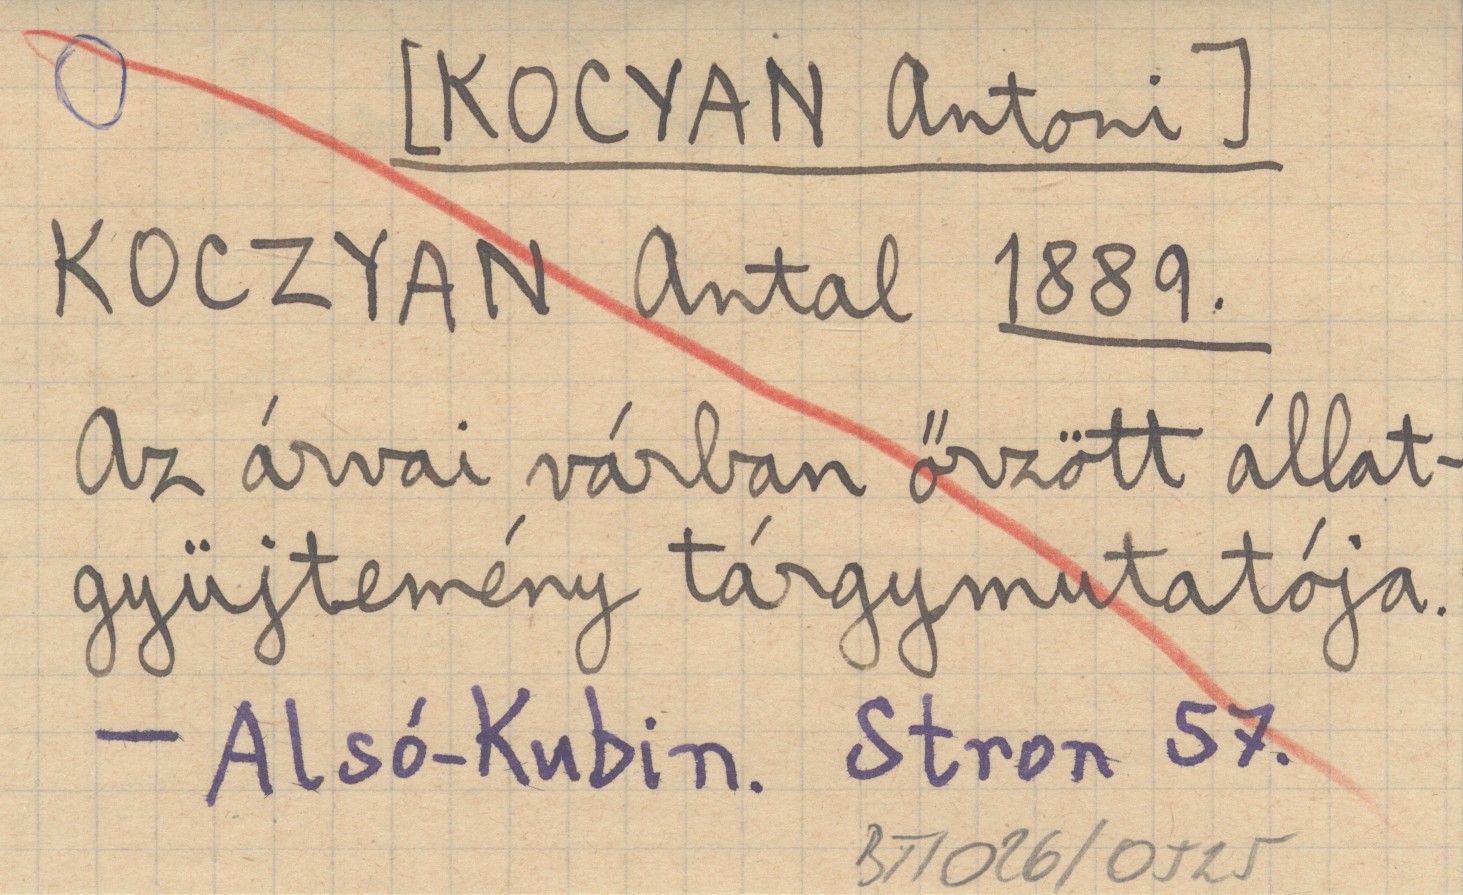 [KOCYAN Antoni]
KOCZYAN Antal 1889.
Az árvai várban őrzött állat-
gyüjtemény tárgymutatója.
— Alsó-Kubin. Stron 57.
BTI 026/0525